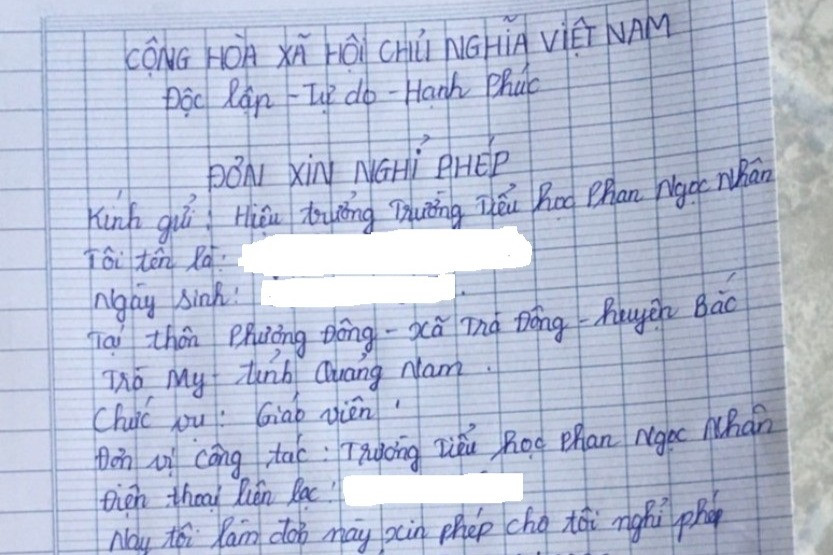 CỘNG HÒA XÃ HỘI CHỦ NGHĨA VIỆT NAM
Độc lập - Tự do - Hạnh Phúc
ĐƠN XIN NGHỈ PHÉP
Kính gửi: Hiệu trưởng Trường Tiểu học Phan Ngọc Nhân
Tôi tên là:
Ngày sinh: .
Tại thôn Phương Đông - xã Trà Đông - huyện Bắc
Trà My - tỉnh Quảng Nam.
Chức vụ: Giáo viên
Đơn vị công tác: Trường Tiểu học Phan Ngọc Nhân
Điện thoại liên lạc:
Nay tôi làm đơn này xin phép cho tôi nghỉ phép